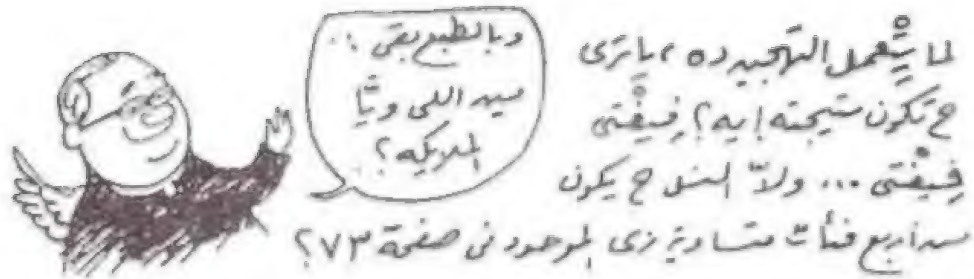 لما يتعمل التهجين ده، ياترى
ح تكون نتيجته إيه؟ فيفتى
فيفتى ... ولاّ النسل ح يكون
من أربع فئات متساوية زى الموجود فى صفحة ٢٧٣؟
وبالطبع بقى ..
مين اللى ويّا
الملايكه؟